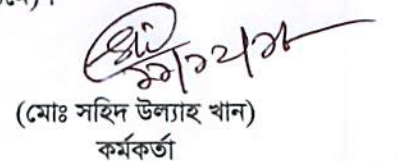 (মোঃ সহিদ উল্যাহ খান)
কর্মকর্তা